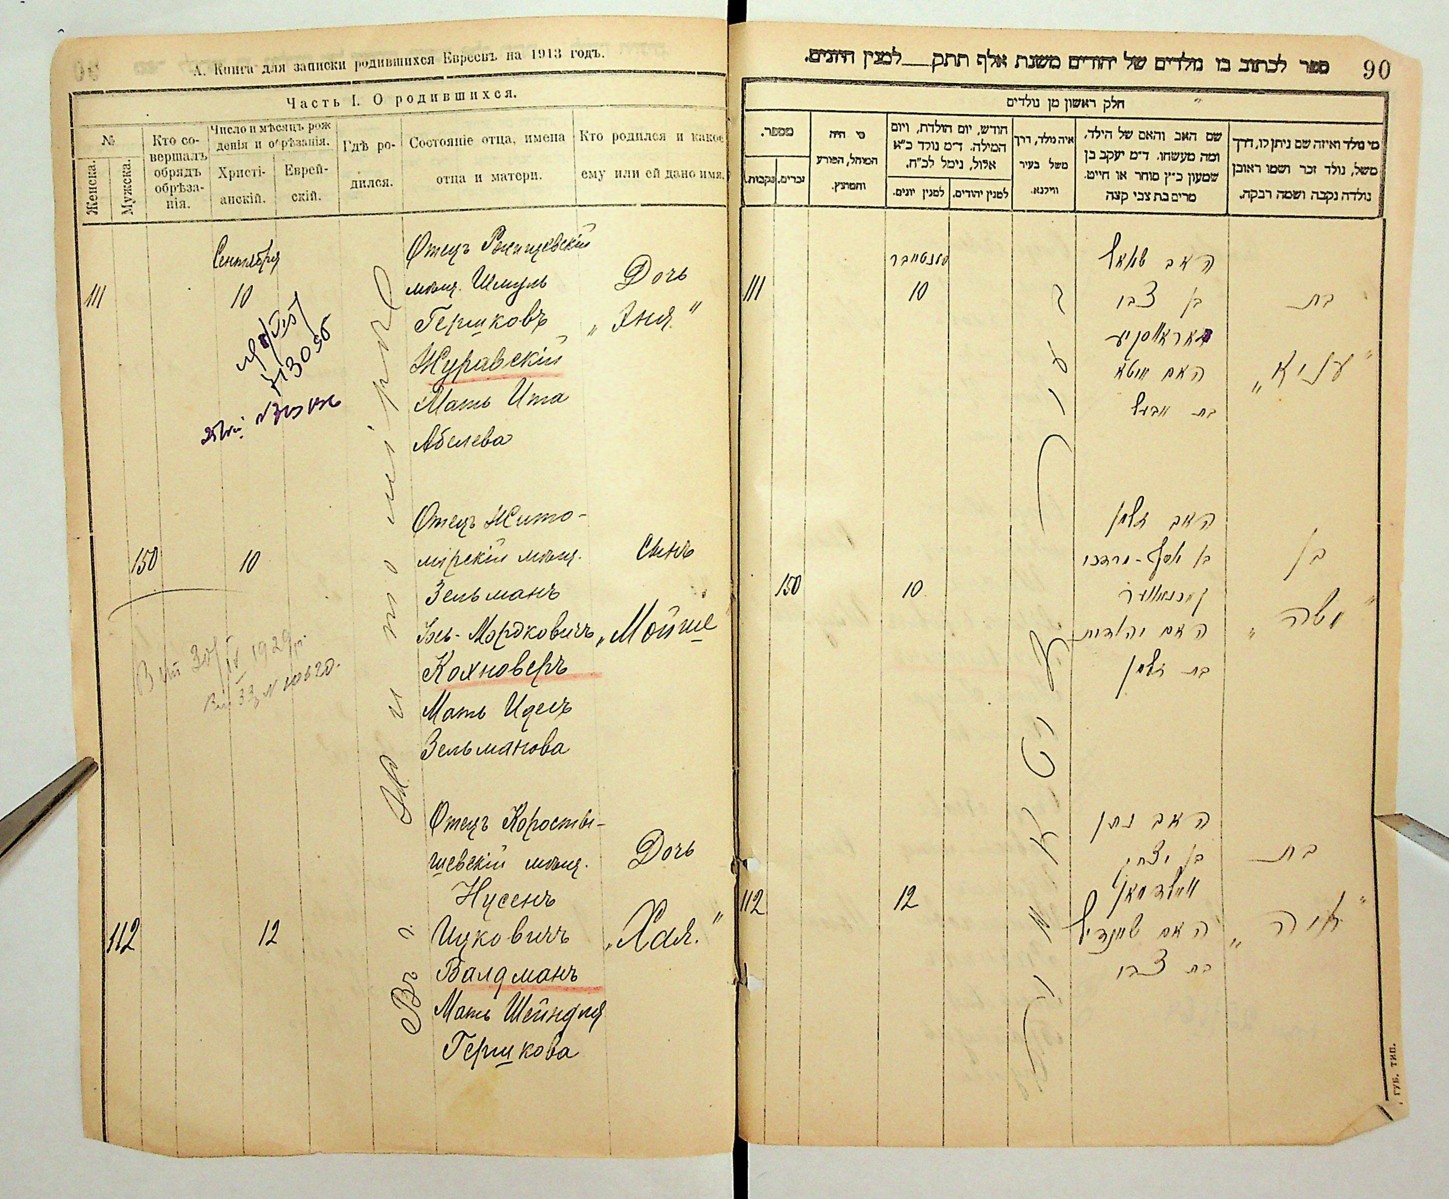 А. Книга для записки родившихся Евреевъ на 1913 годъ.
Часть I. О родившихся.
№
Женска.
Мужска.
Кто со-
вершалъ
обрядъ
обрѣза-
нія.
Число и мѣсяцъ рож
денія и обрѣзанія.
Христі-
анскій.
Еврей-
скій.
Гдѣ ро-
дился.
Состояніе отца, имена
отца и матери.
Кто родился и какое
ему или ей дано имя.
Въ г. Житомірѣ
Сентября
111
10
Отецъ
мѣщ. Шмуль
Гершковъ
Журавскій
Мать Ита
Абелева
Дочь
„Эня"
150
10
Отецъ Жито-
мірскій мѣщ.
Зельманъ
Іось-Мордковичъ
Кохноверъ
Мать Идесъ
Зельманова
Сынъ
„Мойше"
30/IV 1929 р.
112
12
Отецъ Коросты-
шевскій мѣщ.
Нусенъ
Ицковичъ
Валдманъ
Мать Шейндля
Гершкова
Дочь
„Хая."
90
ספר לכתוב בו נולדים של יהודים משנת אלף תתק__למנין היונים.
חלק ראשון מן נולדים
מספר.
נקבות.
זכרים.
מי היה
המוהל, הפורע
והמוצץ.
חודש, יום הולדת, ויום
המילה. ד״מ נולד כ״א
אלול, נימל לכ״ח.
למנין יונים.
למנין יהודים.
איה נולד, דרך
משל בעיר
ווילנא.
שם האב והאם של הילד,
ומה מעשהו. ד״מ יעקב בן
שמעון כ״ץ סוחר או חייט.
מרים בת צבי קצה
מי נולד ואיזה שם ניתן לו, דרך
משל, נולד זכר ושמו ראובן
נולדה נקבה ושמה רבקה.
111
10
האב שמואל
בן צבי
האם איטא
בת אבעל
בת
150
10
האב זלמן
האם יהודית
בת זלמן
בן
„משה"
112
12
האב נתן
בן יצחק
וואלדמאן
האם שיינדיל
בת צבי
בת
„חיה"
ГУБ. ТИП.